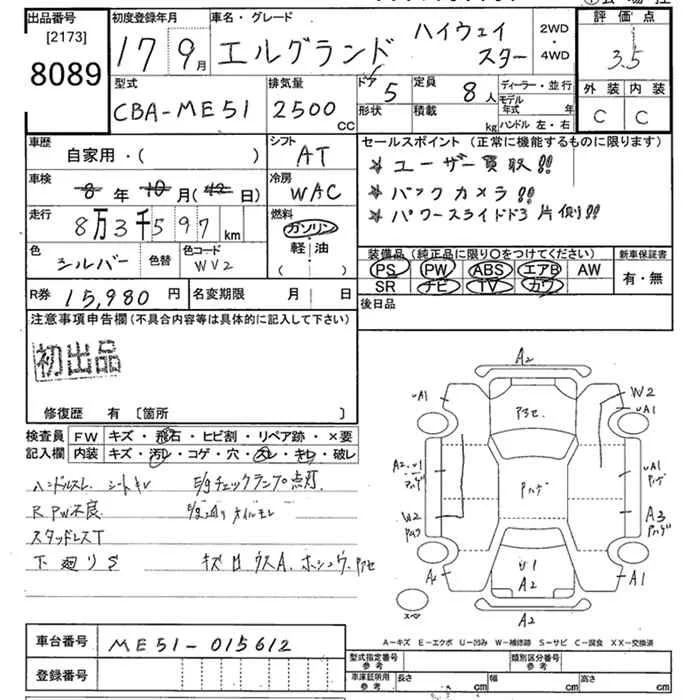 出品番号 初度登録年月 車名・グレード 評価点
[2173]
8089
17 9月 エルグランド ハイウェイ
スター
2WD
・
4WD
3.5
型式 排気量 ドア 定員 ディーラー・並行 外装 内装
CBA-ME51 2500 CC 5 8人 モデル年式 年
形状 積載 kg ハンドル 左・右 C C
車歴 シフト セールスポイント (正常に機能するものに限ります)
自家用・( ) AT ★ ユーザー買取!!
車検 冷房
8年 10月(12日) WAC ★ バックカメラ!!
走行 燃料 ★ パワースライドドア 片側!!
8万3千597km ガソリン
色 色替 色コード 軽油
シルバー WV2 ( )
装備品 (純正品に限り○をつけてください) 新車保証書
PS PW ABS エアB AW 有・無
SR ナビ TV カワ
R券 15,980円 名変期限 月 日 後日品
注意事項申告欄 (不具合内容等は具体的に記入して下さい)
初出品
修復歴 有 [箇所 ]
検査員 FW キズ・飛石・ヒビ割・リペア跡・×要
記入欄 内装 キズ・汚レ・コゲ・穴・スレ・キレ・破レ
ハンドルスレ シートキレ E/gチェックランプ点灯
R PW不良 E/g廻りオイルモレ
スタッドレスT
下廻りS キズ凹 ウスA.
A2
UA1 W2
アセ UA1
A2 U1 アハゲ
W2
UA1
A3
A
U1
A2
A1
A2
スペ
A-キズ E-エクボ U-凹み W-補修跡 S-サビ C-腐食 XX-交換済
車台番号 ME51-015612
型式指定番号 参考 類別区分番号 参考
登録番号
車庫証明用 参考 長さ cm 幅 cm 高さ cm